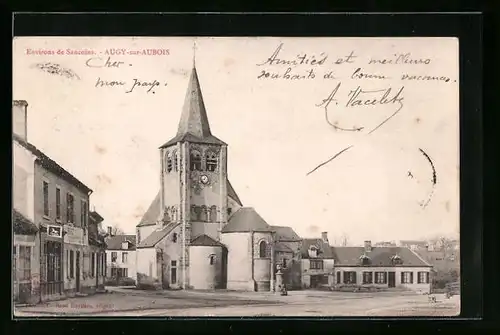 Environs de Sancoins. - AUGY-sur-AUBOIS
Cher.
mon pays.
Amitiés et meilleurs
souhaits de bonne vacances.
A. Vacelet